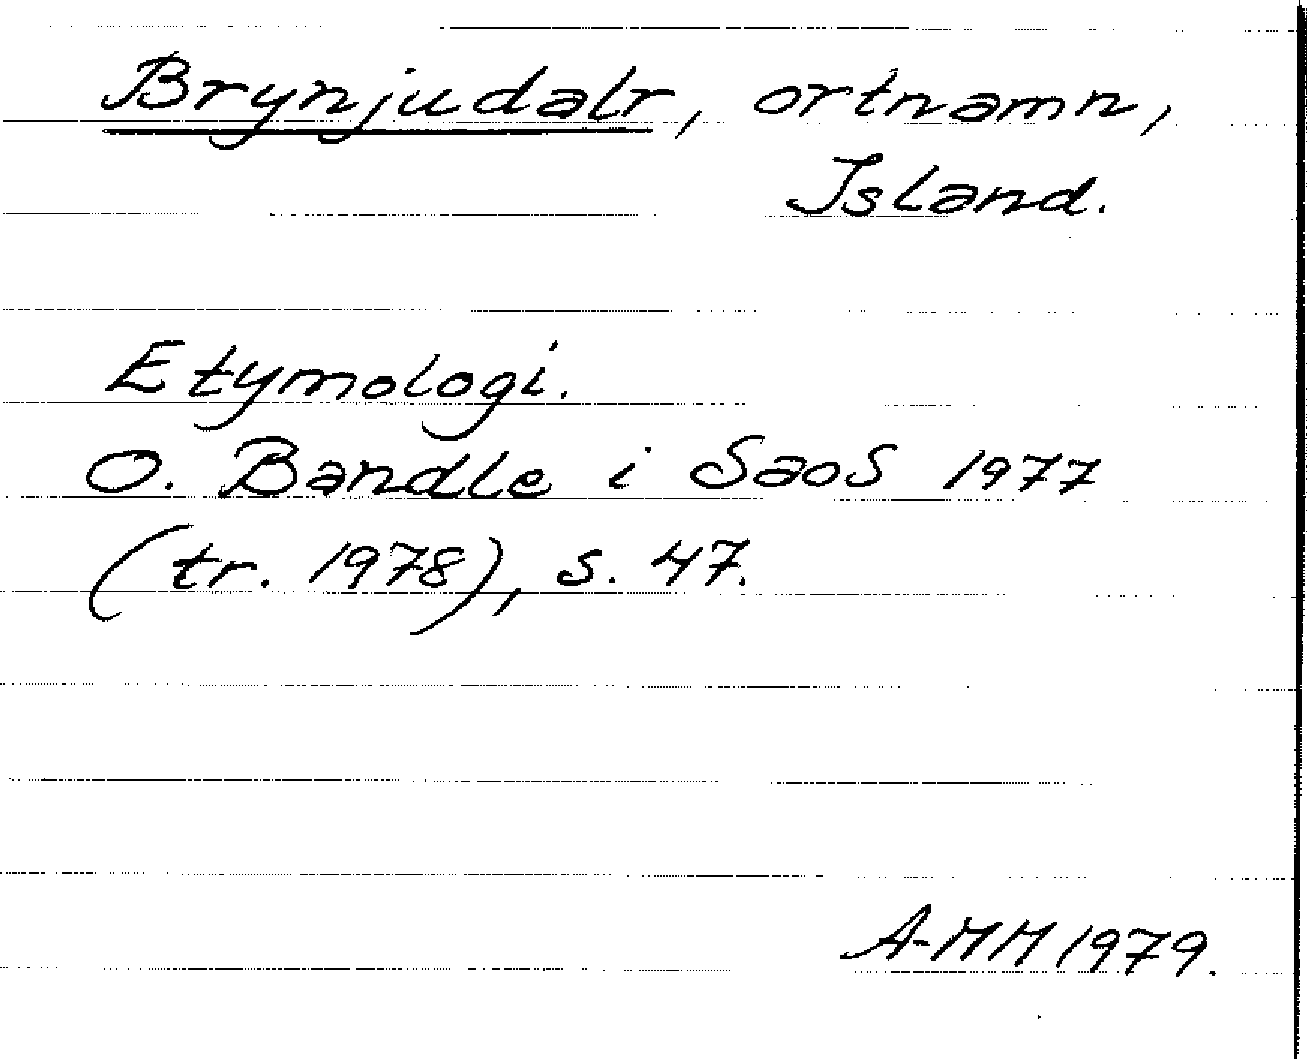 Brynjudalr, ortnamn,
Island.
Etymologi.
O. Bandle i SaoS 1977
(tr. 1978), s. 47.
A-MM 1979.